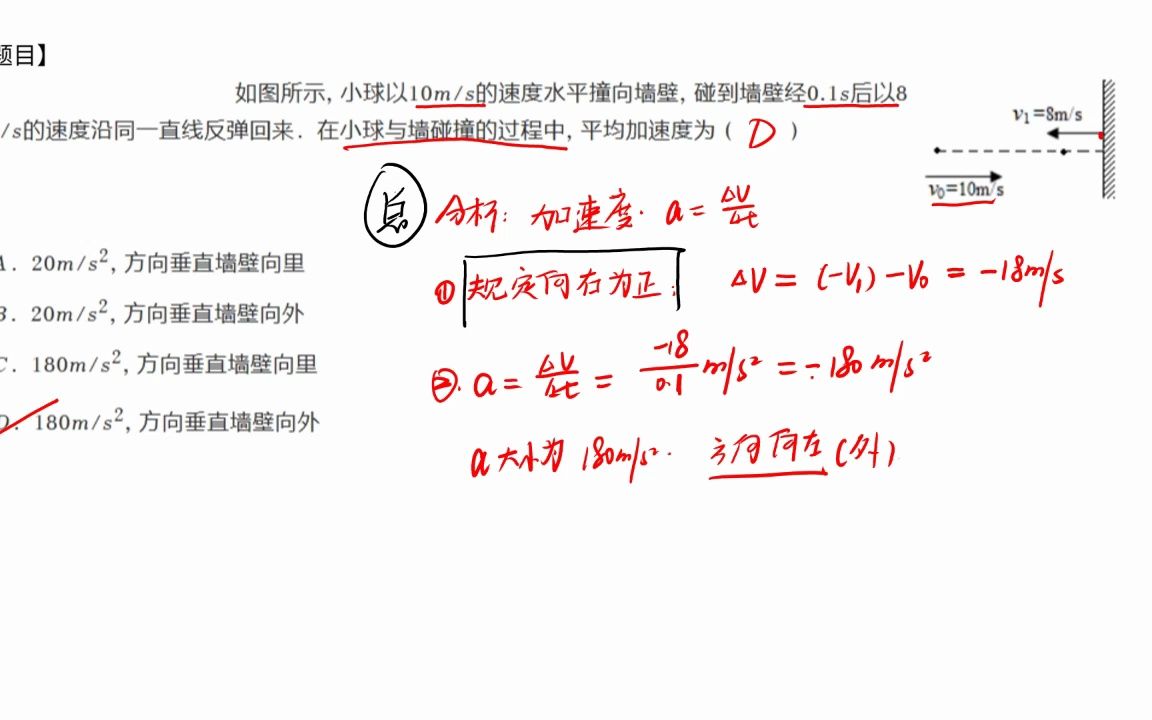 题目】
如图所示, 小球以10m/s的速度水平撞向墙壁, 碰到墙壁经0.1s后以8
/s的速度沿同一直线反弹回来. 在小球与墙碰撞的过程中, 平均加速度为 ( D )
v₁=8m/s
v₀=10m/s
总 分析: 加速度. a = ΔV/Δt
① 规定向右为正: ΔV = (-V₁) - V₀ = -18m/s
A. 20m/s², 方向垂直墙壁向里
B. 20m/s², 方向垂直墙壁向外
C. 180m/s², 方向垂直墙壁向里
D. 180m/s², 方向垂直墙壁向外
②. a = ΔV/Δt = -18/0.1 m/s² = -180 m/s²
a 大小为 180m/s². 方向向左 (外)